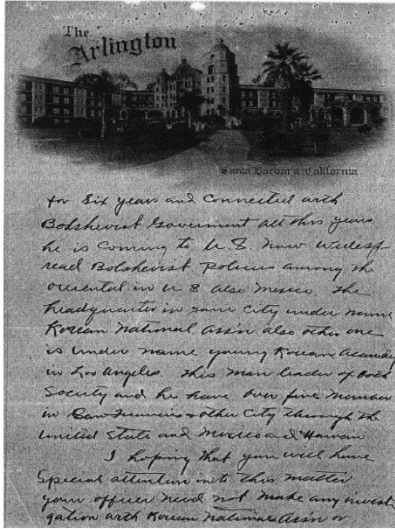 The
Arlington
Santa Barbara, California
for Six years and Connected with
Bolshevist Goverment all this years
he is Coming to U.S. now widesp-
read Bolshevist Policies among the
oriental in U S also Mexico. the
headquarter in your City under name
Korean National Assn also other one
is under name young Korean Acamdey
in Los Angeles. this man leader of both
Society and he have over five
in San Francisco & other City through the
united State and Mexico and Hawaii
I hoping that you will have
Special attention into this matter
your officer need not make any invest
gation with Korean National Assn or